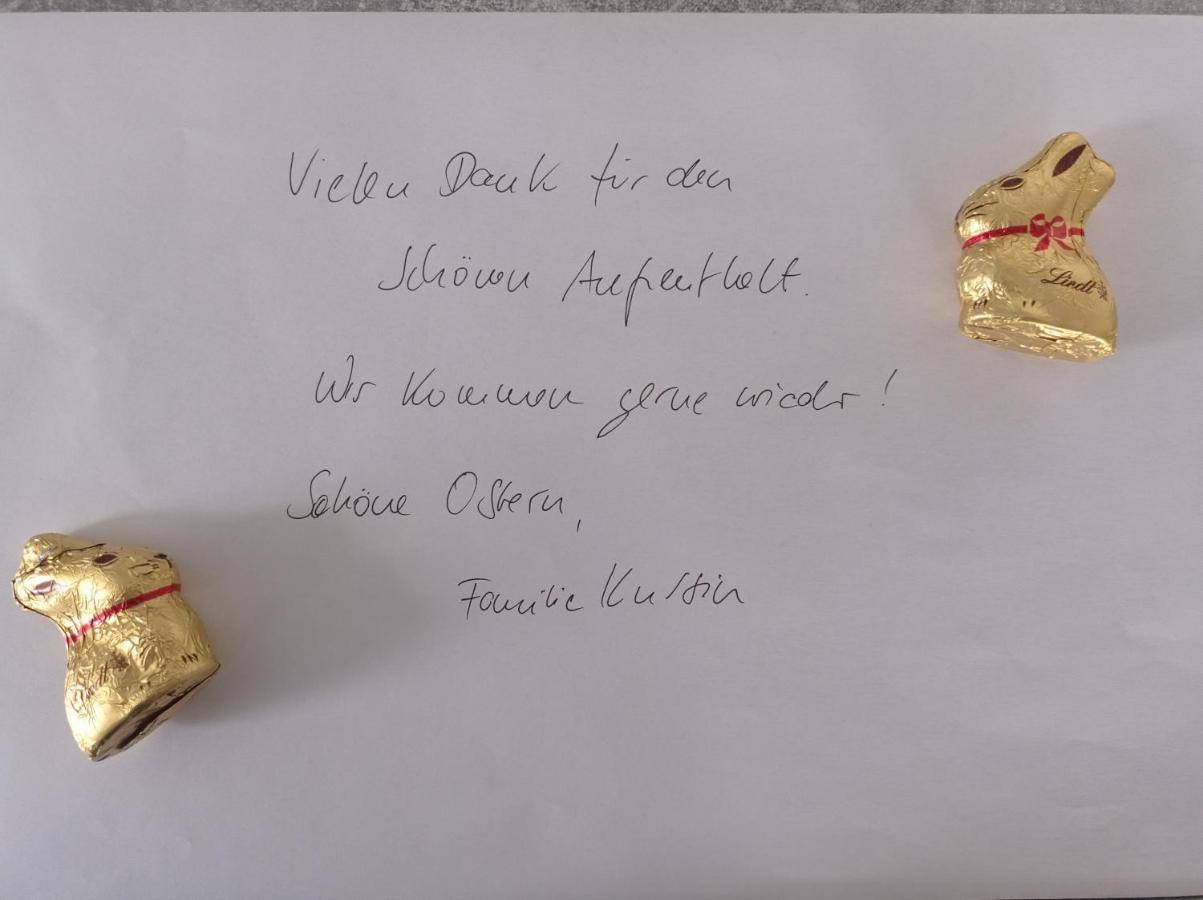 Vielen Dank für den
schönen Aufenthalt.
Wir kommen gerne wieder!
Schöne Ostern,
Familie
Lindt
Lindt